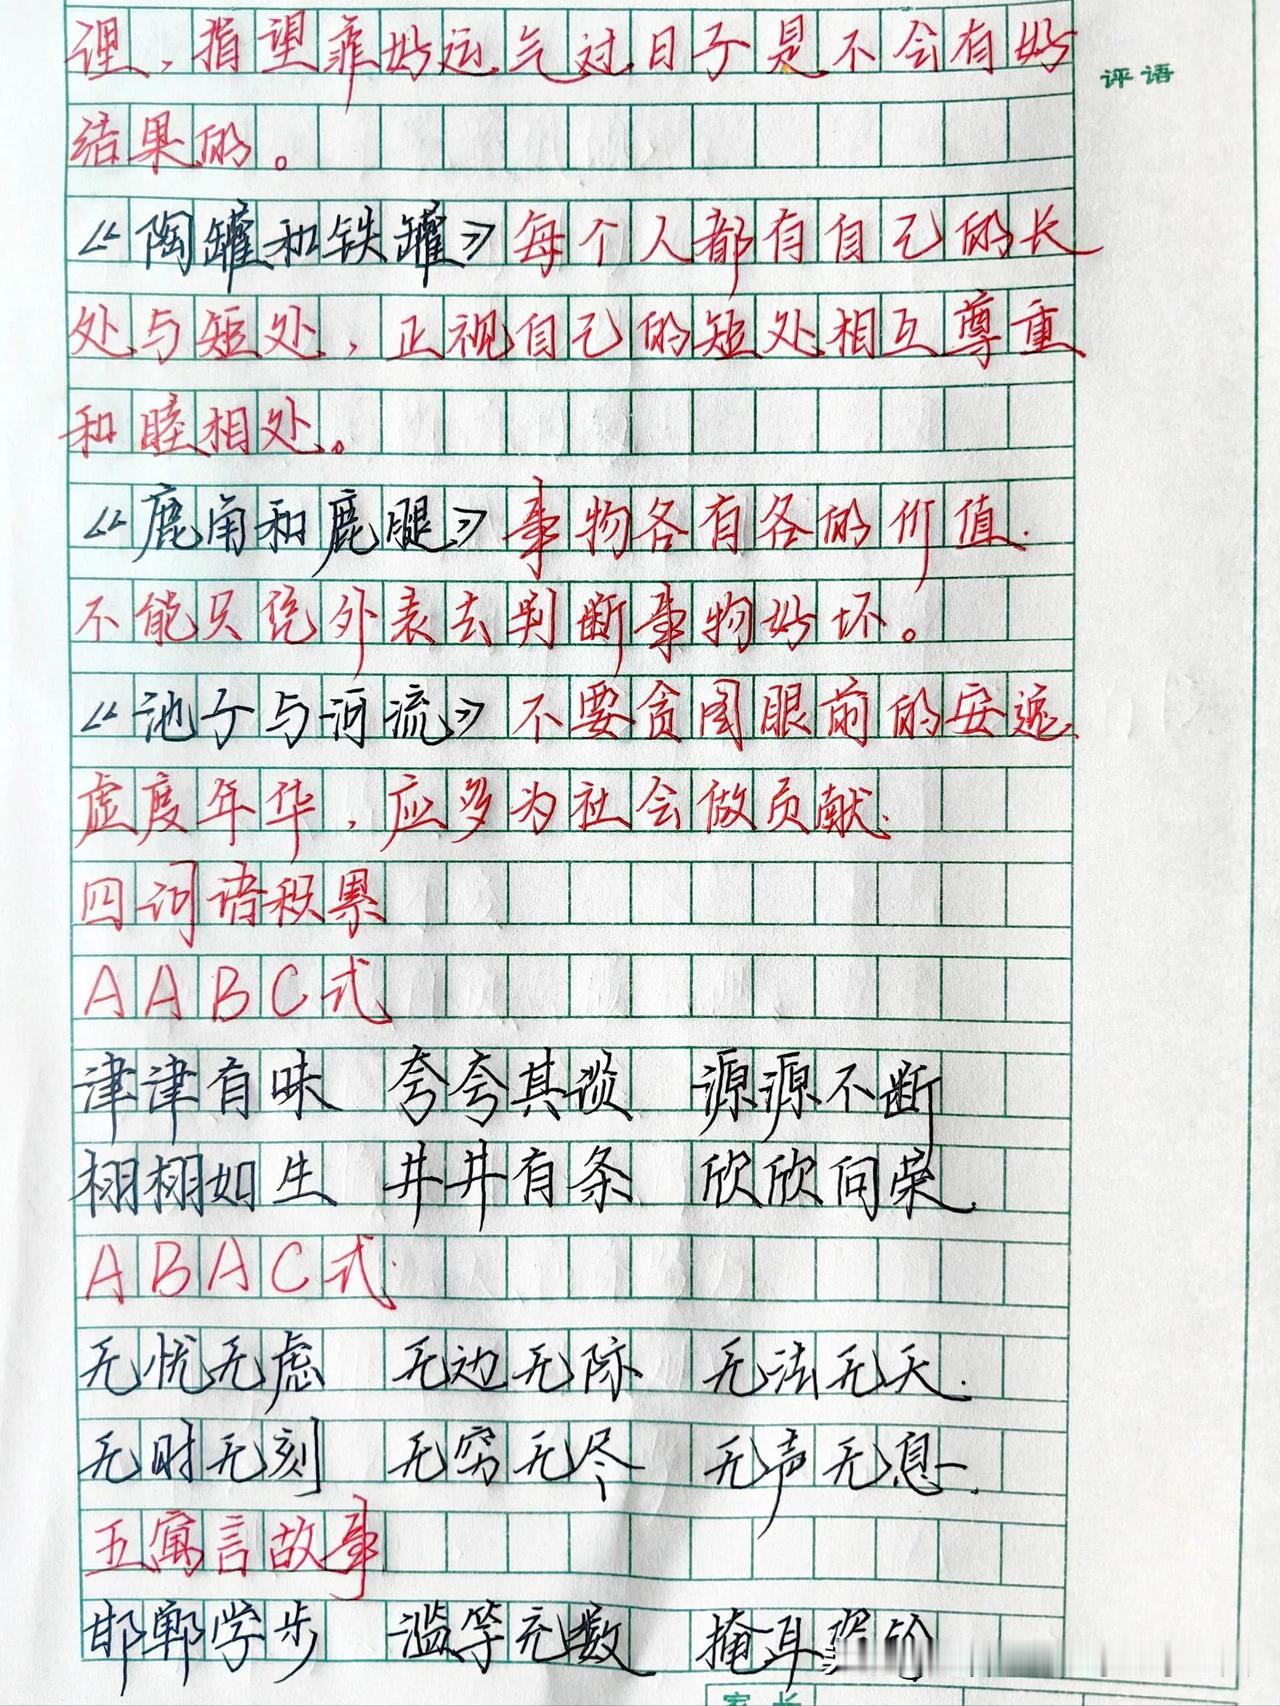 理，指望靠好运气过日子是不会有好
评语
结果的。
《陶罐和铁罐》每个人都有自己的长
处与短处，正视自己的短处相互尊重
和睦相处。
《鹿角和鹿腿》事物各有各的价值.
不能只凭外表去判断事物好坏。
《池子与河流》不要贪图眼前的安逸.
虚度年华，应多为社会做贡献.
四词语积累
AABC式
津津有味 夸夸其谈 源源不断
栩栩如生 井井有条 欣欣向荣.
ABAC式.
无忧无虑 无边无际 无法无天.
无时无刻 无穷无尽 无声无息.
五寓言故事
邯郸学步 滥竽充数 掩耳
家长